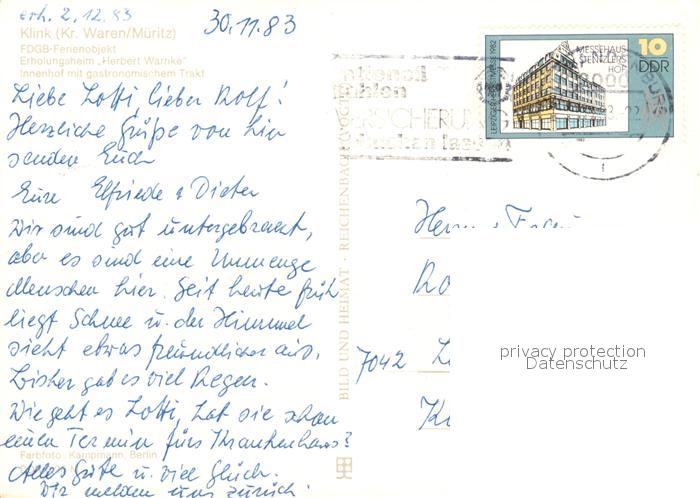 erh. 2.12.83
30.11.83
Klink (Kr. Waren/Müritz)
FDGB-Ferienobjekt
Erholungsheim „Herbert Warnke"
Innenhof mit gastronomischem Trakt
Liebe Lotti, lieber Rolf!
Herzliche Grüße von hier
senden Euch
Eure Elfriede + Dieter
Wir sind gut untergebracht,
aber es sind eine Unmenge
Menschen hier. Seit heute früh
liegt Schnee u. der Himmel
sieht etwas freundlicher aus.
Bisher gab es viel Regen.
Wie geht es Lotti, hat sie schon
einen Termin fürs Krankenhaus?
Alles Gute u. viel Glück.
Wir melden uns zurück.
Farbfoto: Kampmann, Berlin
BILD UND HEIMAT · REICHENBACH (VOGTL)
LEIPZIGER HERBSTMESSE 1982
MESSEHAUS
STENTZLERS
HOF
10
DDR
7042
privacy protection
Datenschutz